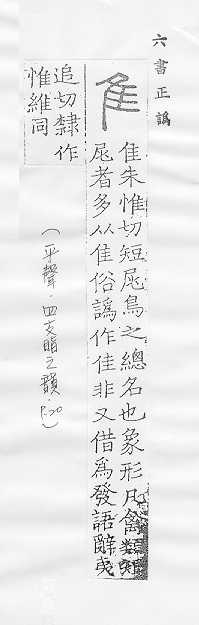 六書正譌
隹
隹朱惟切短尾鳥之總名也象形凡禽類短
尾者多从隹俗譌作佳非又借爲發語辭夷
追切隸作
惟維同
（平聲．四支脂之韻．P.20）